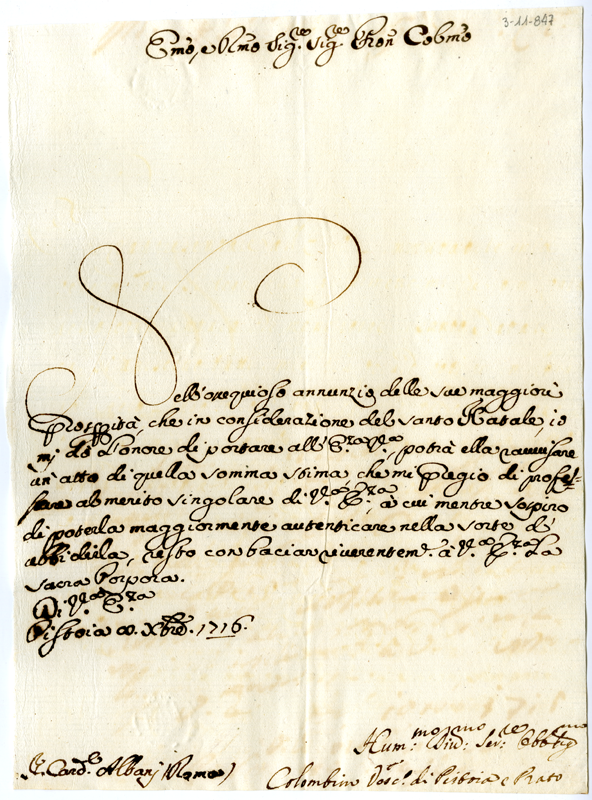 3-11-847
Emo, e Rmo Sig.re Sig.re Pron Colmo
Nell'ossequioso annunzio delle sue maggiori
prosperità, che in considerazione del santo Natale, io
mi dò l'onore di portare all'E.za V.ra, potrà ella ravvisare
un'atto di quella somma stima che mi pregio di profes-
sare al merito singolare di V.ra E.za, à cui mentre sospiro
di poterla maggiormente autenticare nella sorte d'
ubbidirla, resto con baciar riverentem.e à V.ra E.za la
sacra Porpora.
Di V.ra E.za
Pistoia Xbre. 1716.
Hum:mo Div:mo Ser:re Obblig.mo
S. Card.le Albani (Roma)
Colombino Vesc.o di Pistoia e Prato